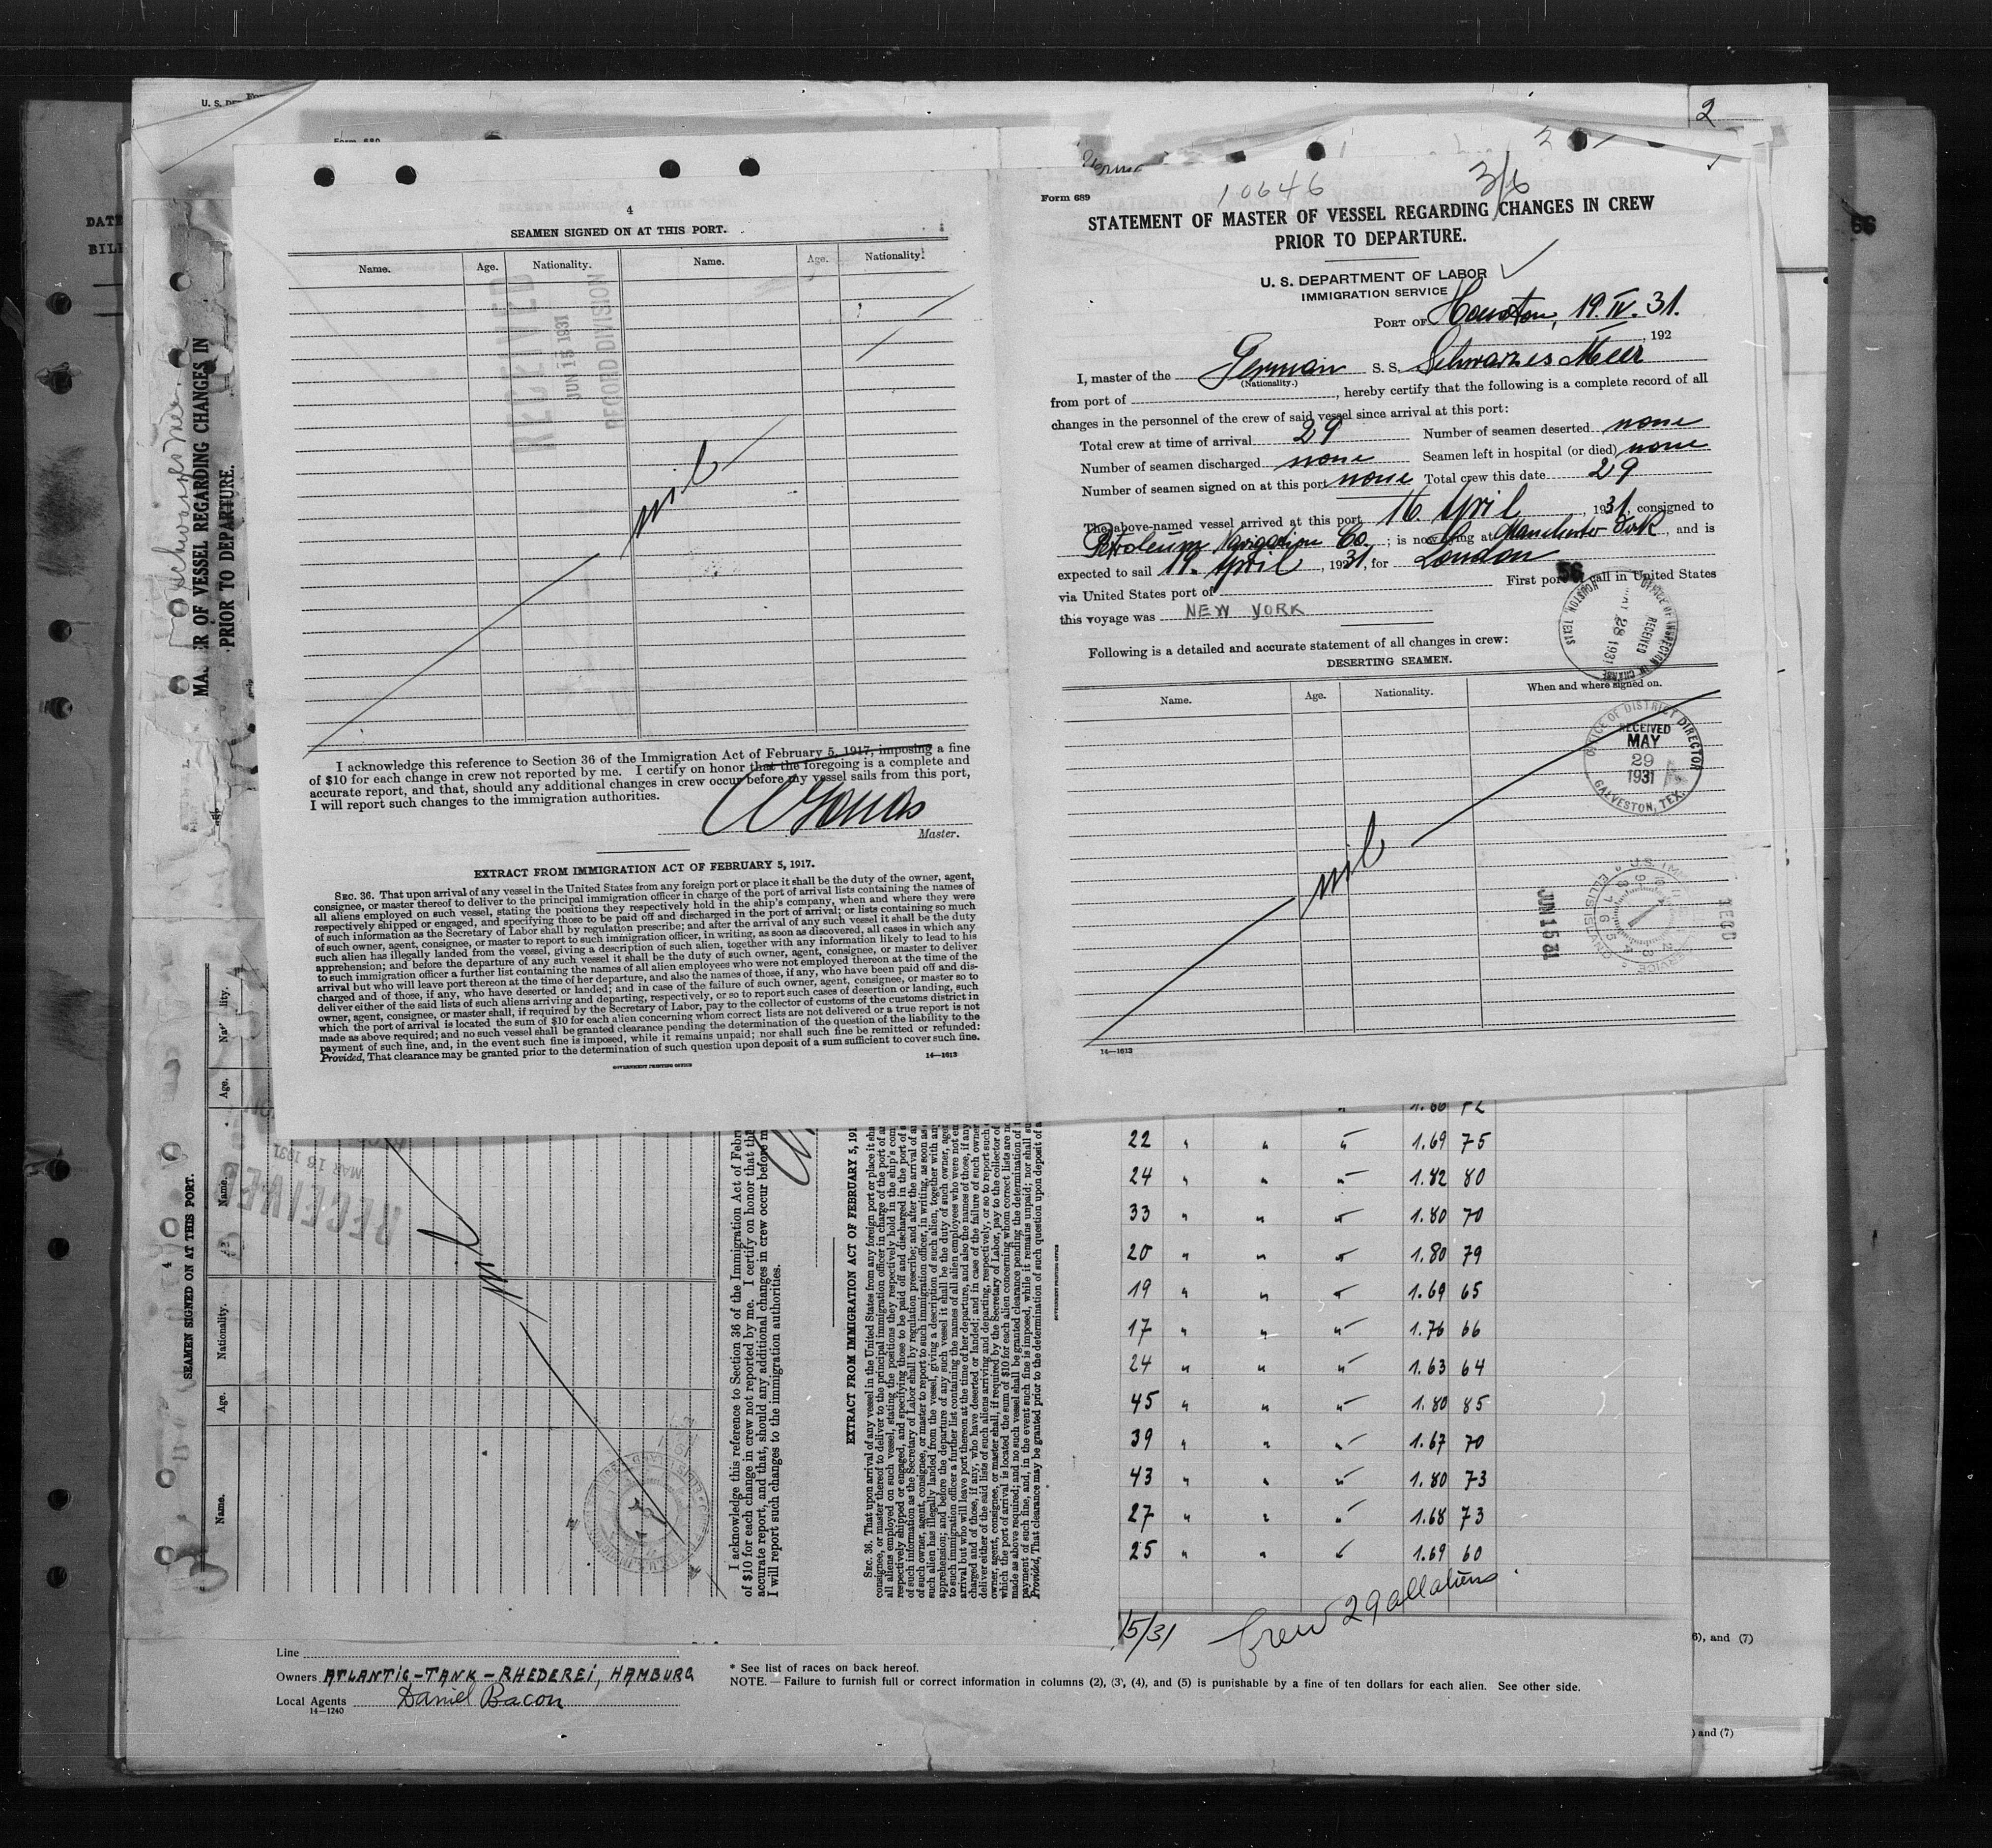 2
56
DATE
BILL
U. S. DE
Form 680
4
SEAMEN SIGNED ON AT THIS PORT.
Name. Age. Nationality. Name. Age. Nationality.
RECEIVED
JUN 15 1931
RECORD DIVISION
nil
I acknowledge this reference to Section 36 of the Immigration Act of February 5, 1917, imposing a fine
of $10 for each change in crew not reported by me. I certify on honor that the foregoing is a complete and
accurate report, and that, should any additional changes in crew occur before my vessel sails from this port,
I will report such changes to the immigration authorities.
Master.
EXTRACT FROM IMMIGRATION ACT OF FEBRUARY 5, 1917.
SEC. 36. That upon arrival of any vessel in the United States from any foreign port or place it shall be the duty of the owner, agent,
consignee, or master thereof to deliver to the principal immigration officer in charge of the port of arrival lists containing the names of
all aliens employed on such vessel, stating the positions they respectively hold in the ship's company, when and where they were
respectively shipped or engaged, and specifying those to be paid off and discharged in the port of arrival; or lists containing so much
of such information as the Secretary of Labor shall by regulation prescribe; and after the arrival of any such vessel it shall be the duty
of such owner, agent, consignee, or master to report to such immigration officer, in writing, as soon as discovered, all cases in which any
such alien has illegally landed from the vessel, giving a description of such alien, together with any information likely to lead to his
apprehension; and before the departure of any such vessel it shall be the duty of such owner, agent, consignee, or master to deliver
to such immigration officer a further list containing the names of all alien employees who were not employed thereon at the time of the
arrival but who will leave port thereon at the time of her departure, and also the names of those, if any, who have been paid off and dis-
charged and of those, if any, who have deserted or landed; and in case of the failure of such owner, agent, consignee, or master so to
deliver either of the said lists of such aliens arriving and departing, respectively, or so to report such cases of desertion or landing, such
owner, agent, consignee, or master shall, if required by the Secretary of Labor, pay to the collector of customs of the customs district in
which the port of arrival is located the sum of $10 for each alien concerning whom correct lists are not delivered or a true report is not
made as above required; and no such vessel shall be granted clearance pending the determination of the question of the liability to the
payment of such fine, and, in the event such fine is imposed, while it remains unpaid; nor shall such fine be remitted or refunded:
Provided, That clearance may be granted prior to the determination of such question upon deposit of a sum sufficient to cover such fine.
14—1613
GOVERNMENT PRINTING OFFICE
10646
3/6
Form 689
STATEMENT OF MASTER OF VESSEL REGARDING CHANGES IN CREW
PRIOR TO DEPARTURE.
U. S. DEPARTMENT OF LABOR
IMMIGRATION SERVICE
PORT OF Houston, 19. IV. 31.
, 192
I, master of the German S. S. Schwarzes Meer
(Nationality.)
from port of , hereby certify that the following is a complete record of all
changes in the personnel of the crew of said vessel since arrival at this port:
Total crew at time of arrival 29 Number of seamen deserted none
Number of seamen discharged none Seamen left in hospital (or died) none
Number of seamen signed on at this port none Total crew this date 29
The above-named vessel arrived at this port 16 April , 1931, consigned to
Petroleum Navigation Co. ; is now lying at Manchester Dock, and is
expected to sail 19. April , 1931, for London
via United States port of First port of call in United States
this voyage was NEW YORK
56
OFFICE OF INSPECTOR IN CHARGE
RECEIVED
28 1931
HOUSTON TEXAS
Following is a detailed and accurate statement of all changes in crew:
DESERTING SEAMEN.
Name. Age. Nationality. When and where signed on.
OFFICE OF DISTRICT DIRECTOR
RECEIVED
MAY
29
1931
GALVESTON, TEX.
nil
JUN 15 31
14—1613
MASTER OF VESSEL REGARDING CHANGES IN
PRIOR TO DEPARTURE.
4
SEAMEN SIGNED ON AT THIS PORT.
Name. Age. Nationality. Name. Age. Nationality.
RECEIVED
MAR 13 1931
nil
I acknowledge this reference to Section 36 of the Immigration Act of Febru
of $10 for each change in crew not reported by me. I certify on honor that th
accurate report, and that, should any additional changes in crew occur before m
I will report such changes to the immigration authorities.
EXTRACT FROM IMMIGRATION ACT OF FEBRUARY 5, 191
22 " " " 1.69 75
24 " " " 1.82 80
33 " " " 1.80 70
20 " " " 1.80 79
19 " " " 1.69 65
17 " " " 1.76 66
24 " " " 1.63 64
45 " " " 1.80 85
39 " " " 1.67 70
43 " " " 1.80 73
27 " " " 1.68 73
25 " " " 1.69 60
/5/31 Crew 29 all aliens
Line
Owners ATLANTIC-TANK-RHEDEREI, HAMBURG
Local Agents Daniel Bacon
14—1240
* See list of races on back hereof.
NOTE.—Failure to furnish full or correct information in columns (2), (3), (4), and (5) is punishable by a fine of ten dollars for each alien. See other side.
6), and (7)
) and (7)